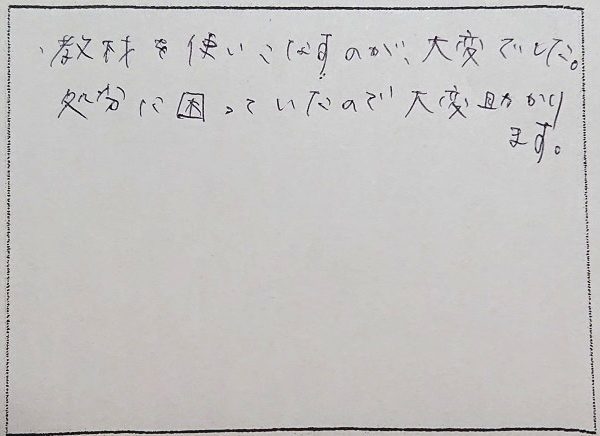 、教材を使いこなすのが、大変でした。
処分に困っていたので大変助かり
ます。